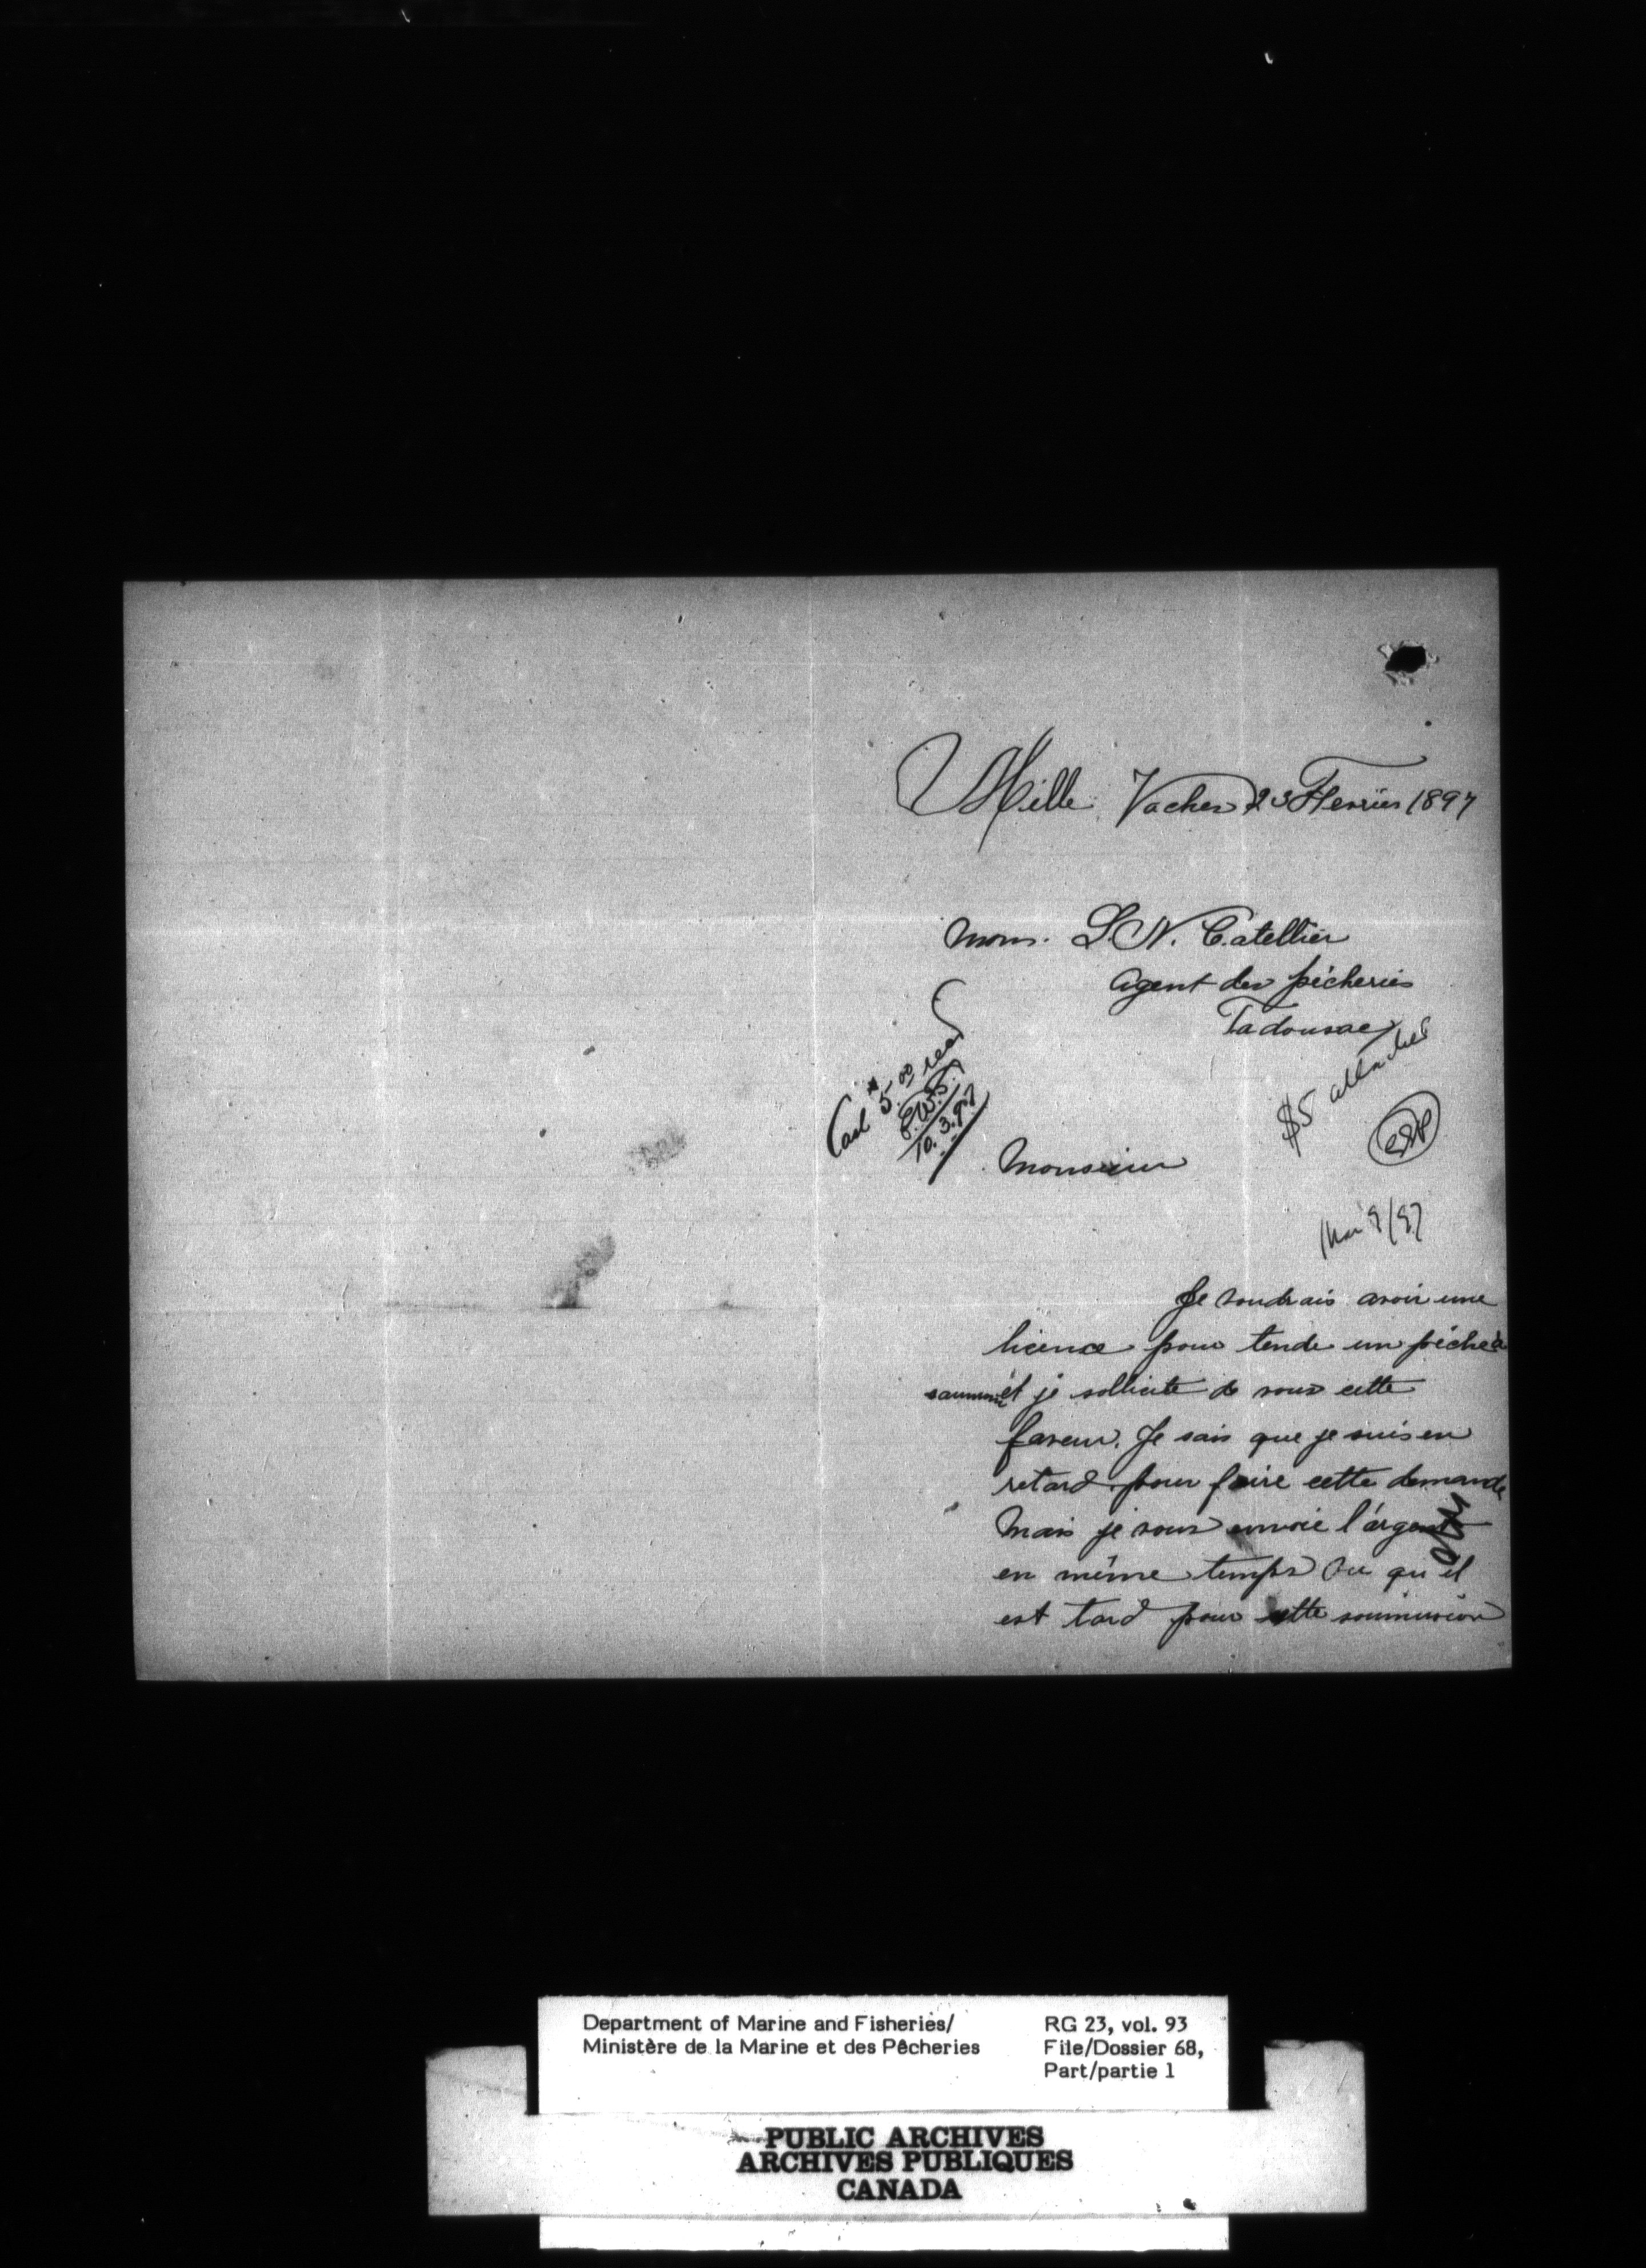 Mille Vaches 23 Fevrier 1897
Mons. L. N. Catellier
Agent des pêcheries
Tadousac
$5 attached
Cash $5.00 recd
E.W.F.
10.3.97
Monsieur
Mar 9/97
Je voudrais avoir une
licence pour tende un pêche à
saumon et je sollicite de vous cette
faveur. Je sais que je suis en
retard pour faire cette demande
Mais je vous envoie l'argent
en même temps vu qu'il
est tard pour cette soumission
Department of Marine and Fisheries/
Ministère de la Marine et des Pêcheries
RG 23, vol. 93
File/Dossier 68,
Part/partie 1
PUBLIC ARCHIVES
ARCHIVES PUBLIQUES
CANADA